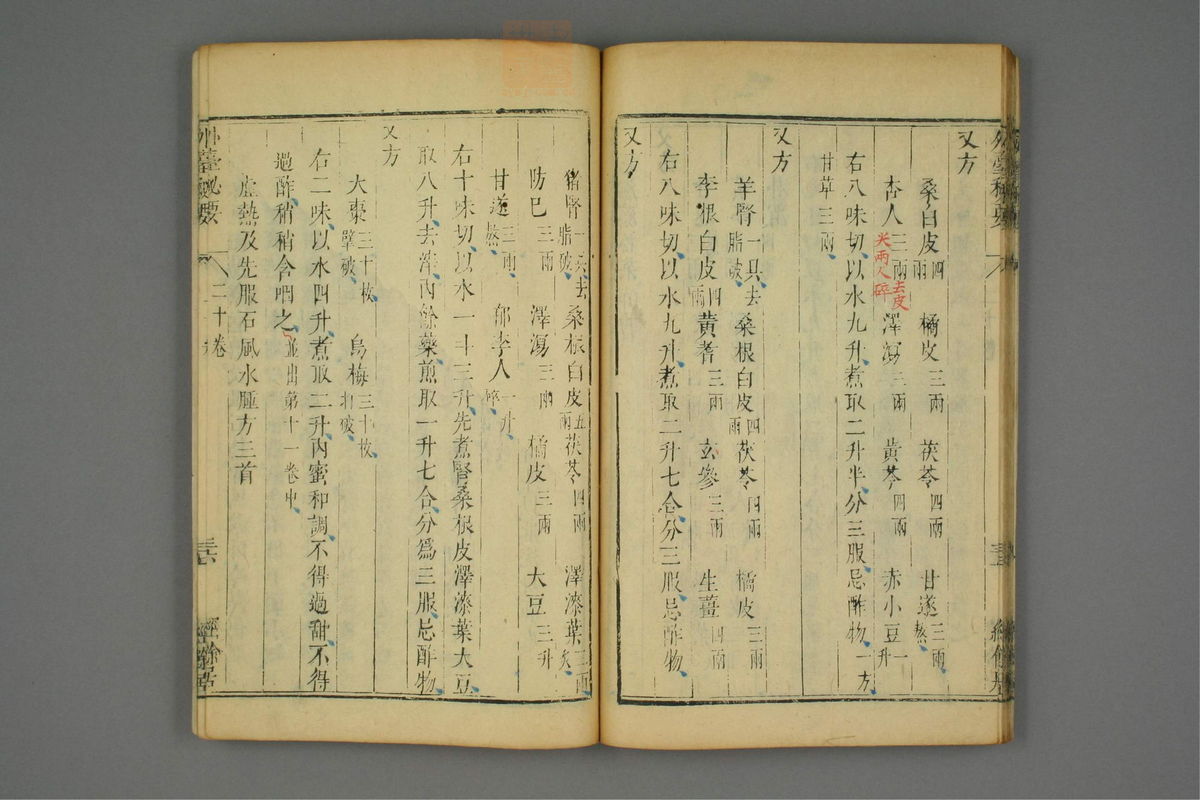 又方
桑白皮四兩 橘皮三兩 茯苓四兩 甘遂三兩熬
杏人三兩去皮尖兩人碎 澤瀉三兩 黃芩四兩 赤小豆一升
右八味切以水九升煮取二升半分三服忌酢物一方
甘草三兩
又方
羊腎一具去脂破 桑根白皮四兩 茯苓四兩 橘皮三兩
李根白皮四兩 黃耆三兩 玄參三兩 生薑四兩
右八味切以水九升煮取二升七合分三服忌酢物
又方
豬腎一具去脂破 桑根白皮五兩 茯苓四兩 澤漆葉三兩炙
防巳三兩 澤瀉三兩 橘皮三兩 大豆三升
甘遂三兩熬 郁李人一升碎
右十味切以水一斗三升先煮腎桑根皮澤漆葉大豆
取八升去滓內餘藥煎取一升七合分爲三服忌酢物
又方
大棗三十枚擘破 烏梅三十枚打破
右二味以水四升煮取二升內蜜和調不得過甜不得
過酢稍稍含咽之並出第十一卷中
虛熱及先服石風水腫方三首
外臺秘要 二十卷 經餘居